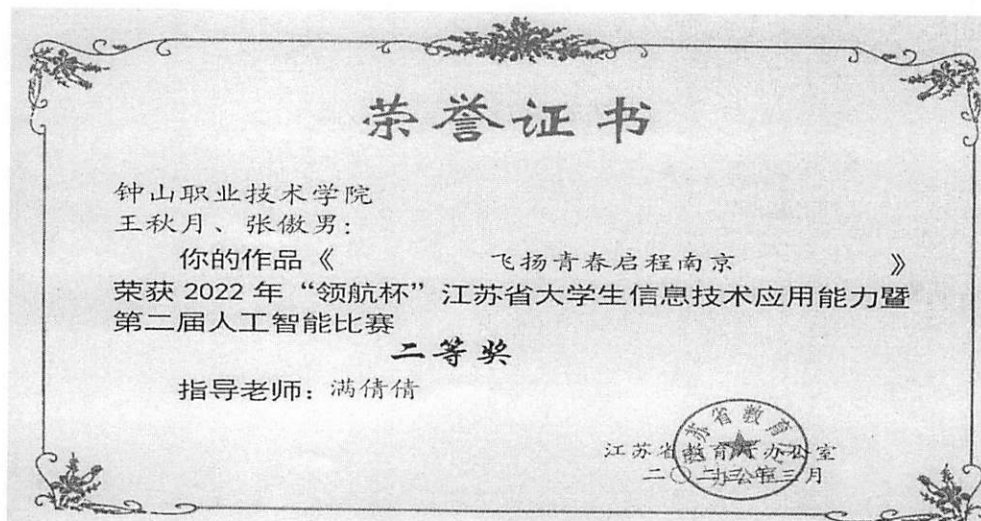 荣誉证书
钟山职业技术学院
王秋月、张傲男：
你的作品《 飞扬青春启程南京 》
荣获 2022 年“领航杯”江苏省大学生信息技术应用能力暨
第二届人工智能比赛
二等奖
指导老师：满倩倩
江苏省教育厅办公室
二〇二三年三月